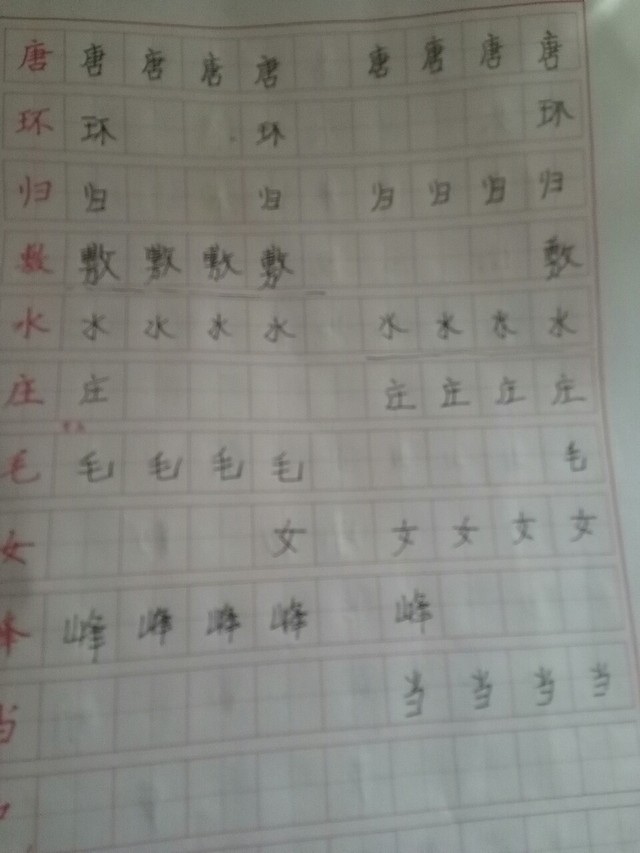 唐 唐 唐 唐 唐 唐 唐 唐 唐
环 环 环 环
归 归 归 归 归 归 归
敷 敷 敷 敷 敷 敷
水 水 水 水 水 水 水 水 水
庄 庄 庄 庄 庄 庄
毛 毛 毛 毛 毛 毛
女 女 女 女 女 女
峰 峰 峰 峰 峰 峰
当 当 当 当 当